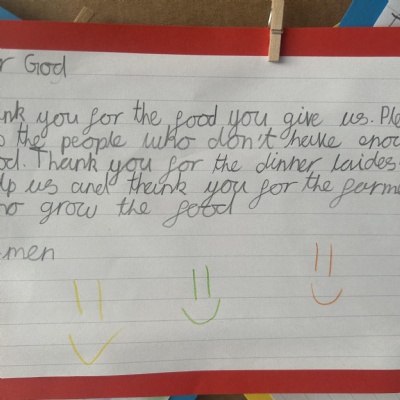 r God
nk you for the food you give us. Ple
o the people who don't have enou
od. Thank you for the dinner laides
lp us and thank you for the farme
ho grow the food
men